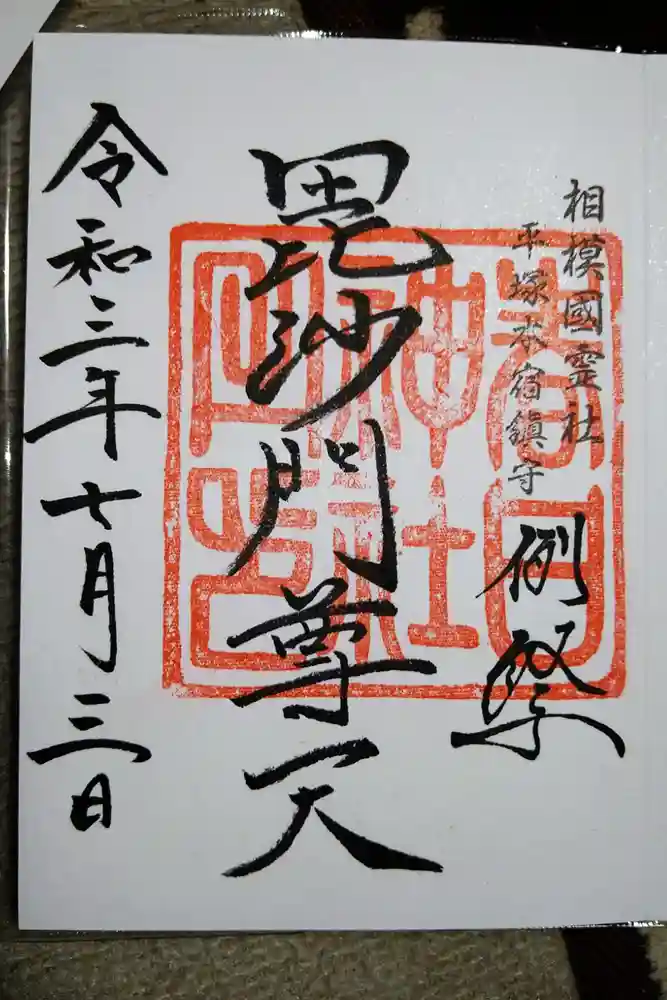 相模國霊社
平塚本宿鎮守
例祭
毘沙門尊天
令和三年七月三日
春日神社